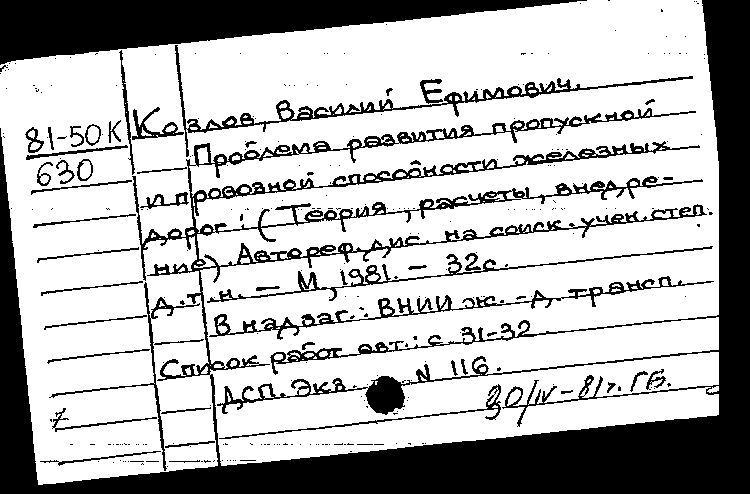 81-50К
630
Козлов, Василий Ефимович.
Проблема развития пропускной
и провозной способности железных
дорог: (Теория, расчеты, внедре-
ние). Автореф. дис. на соиск. учен. степ.
д.т.н. — М., 1981. — 32с.
В надзаг.: ВНИИ ж.-д. трансп.
Список работ авт.: с. 31-32.
ДСП. Экз. N 116.
30/IV-81г. ГБ.